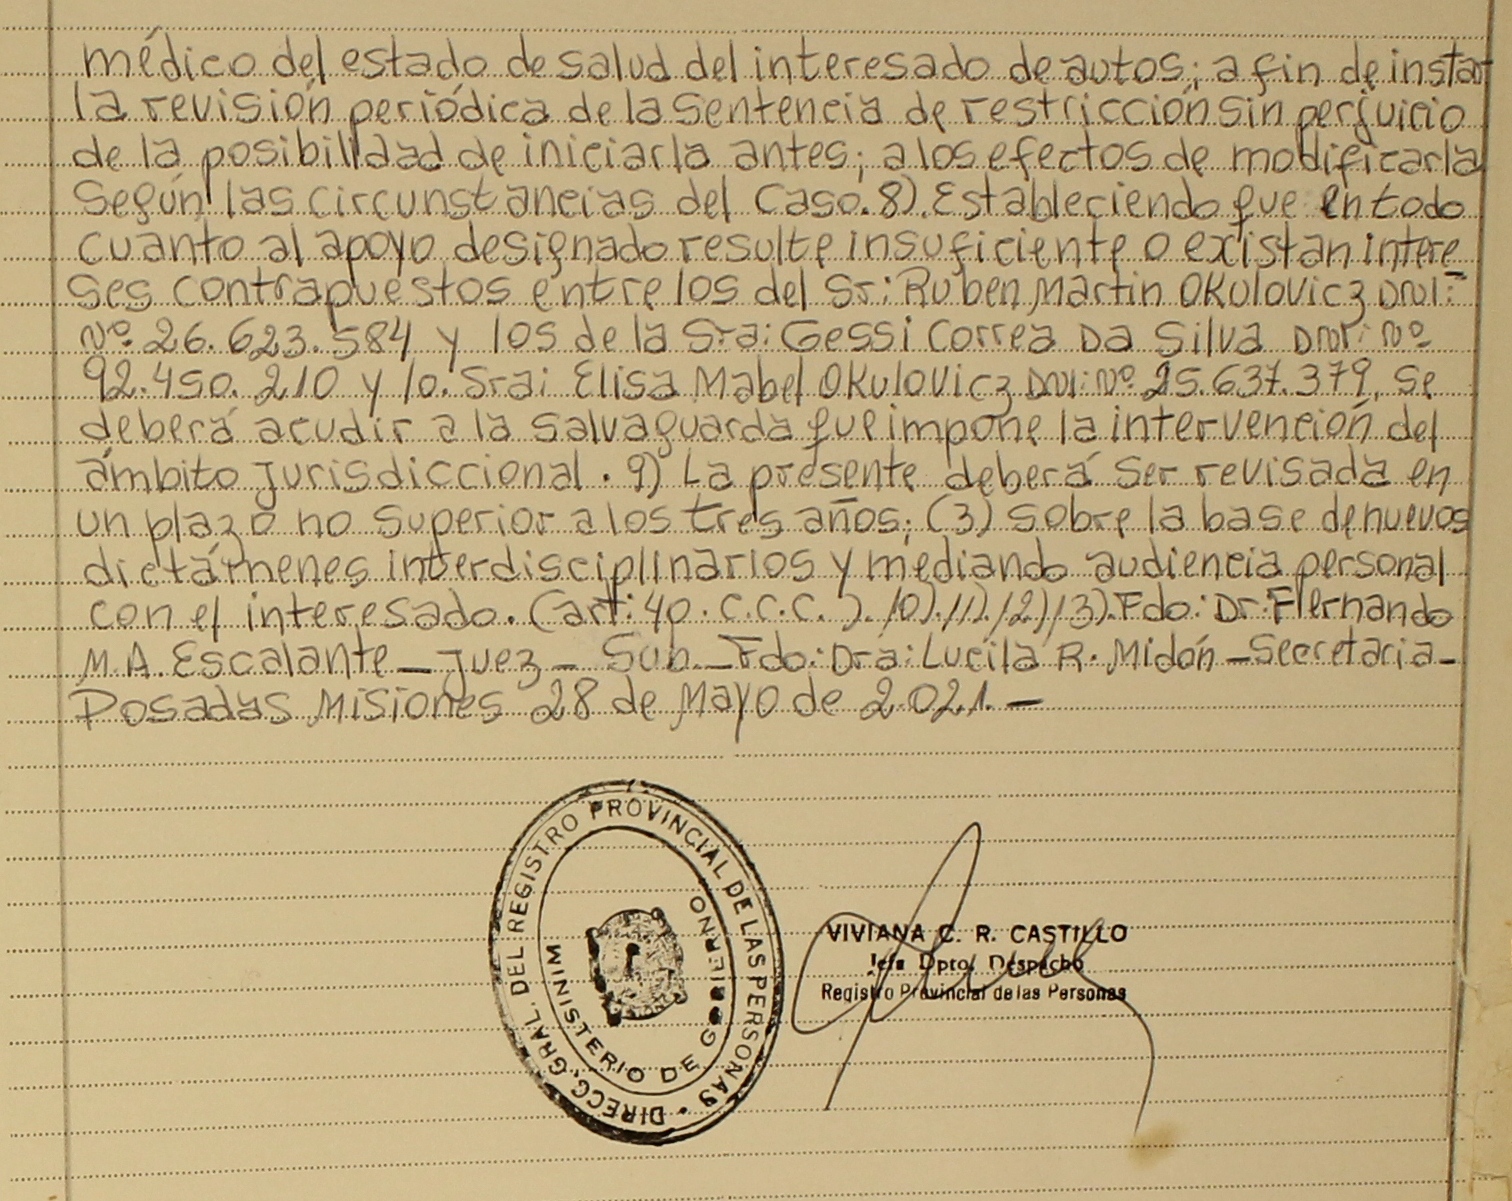 médico del estado de salud del interesado de autos; a fin de instar
la revisión periódica de la Sentencia de restricción sin perjuicio
de la posibilidad de iniciarla antes; a los efectos de modificarla
Según las circunstancias del Caso. 8). Estableciendo que en todo
cuanto al apoyo designado resulte insuficiente o existan intere
ses contrapuestos entre los del Sr: Ruben Martin Okulovicz DNI:
Nº 26.623.584 y los de la Sra: Gessi Correa Da Silva DNI: Nº
92.450.210 y lo. Sra: Elisa Mabel Okulovicz DNI: Nº 25.637.379, se
deberá acudir a la salvaguarda que impone la intervención del
ámbito Jurisdiccional. 9) La presente deberá Ser revisada en
un plazo no superior a los tres años; (3) sobre la base de nuevos
dictámenes interdisciplinarios y mediando audiencia personal
con el interesado. (art: 40. C.C.C. ). 10). 11). 12) 13). Fdo: Dr: Fernando
M.A. Escalante - Juez - Sub - Fdo: Dra: Lucila R. Midón - Secretaria -
Posadas Misiones 28 de Mayo de 2.021. -
DIRECC. GRAL. DEL REGISTRO PROVINCIAL DE LAS PERSONAS •
MINISTERIO DE GOBIERNO
VIVIANA C. R. CASTILLO
Jefa Dpto. Despacho
Registro Provincial de las Personas